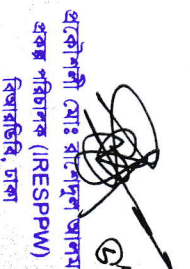 প্রকৌশলী মোঃ রাশেদুল আলম
প্রকল্প পরিচালক (IRESPPW)
বিআরডিবি, ঢাকা